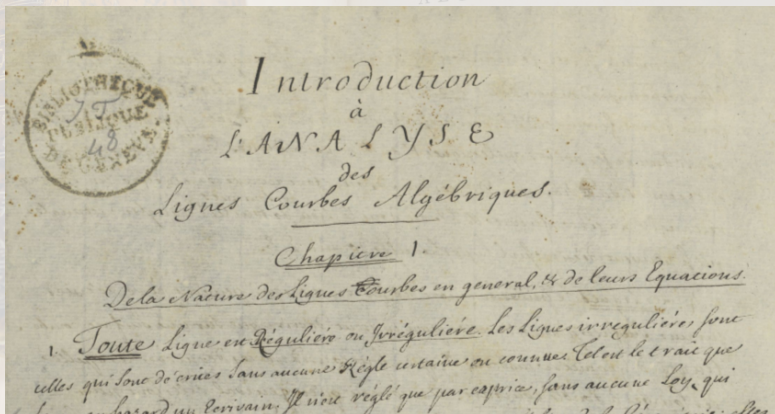 BIBLIOTHEQUE
PUBLIQUE
DE GENEVE
Introduction
à
L'ANALYSE
des
Lignes Courbes Algébriques.
Chapitre 1.
De la Nature des Lignes Courbes en general, & de leurs Equations.
1. Toute Ligne est Réguliére ou Irréguliére. Les Lignes irreguliéres sont
celles qui sont décrites sans aucune Régle certaine ou connue. Tel est le trait que
hazard un Ecrivain. Il n'est réglé que par caprice, sans aucune Loy, qui